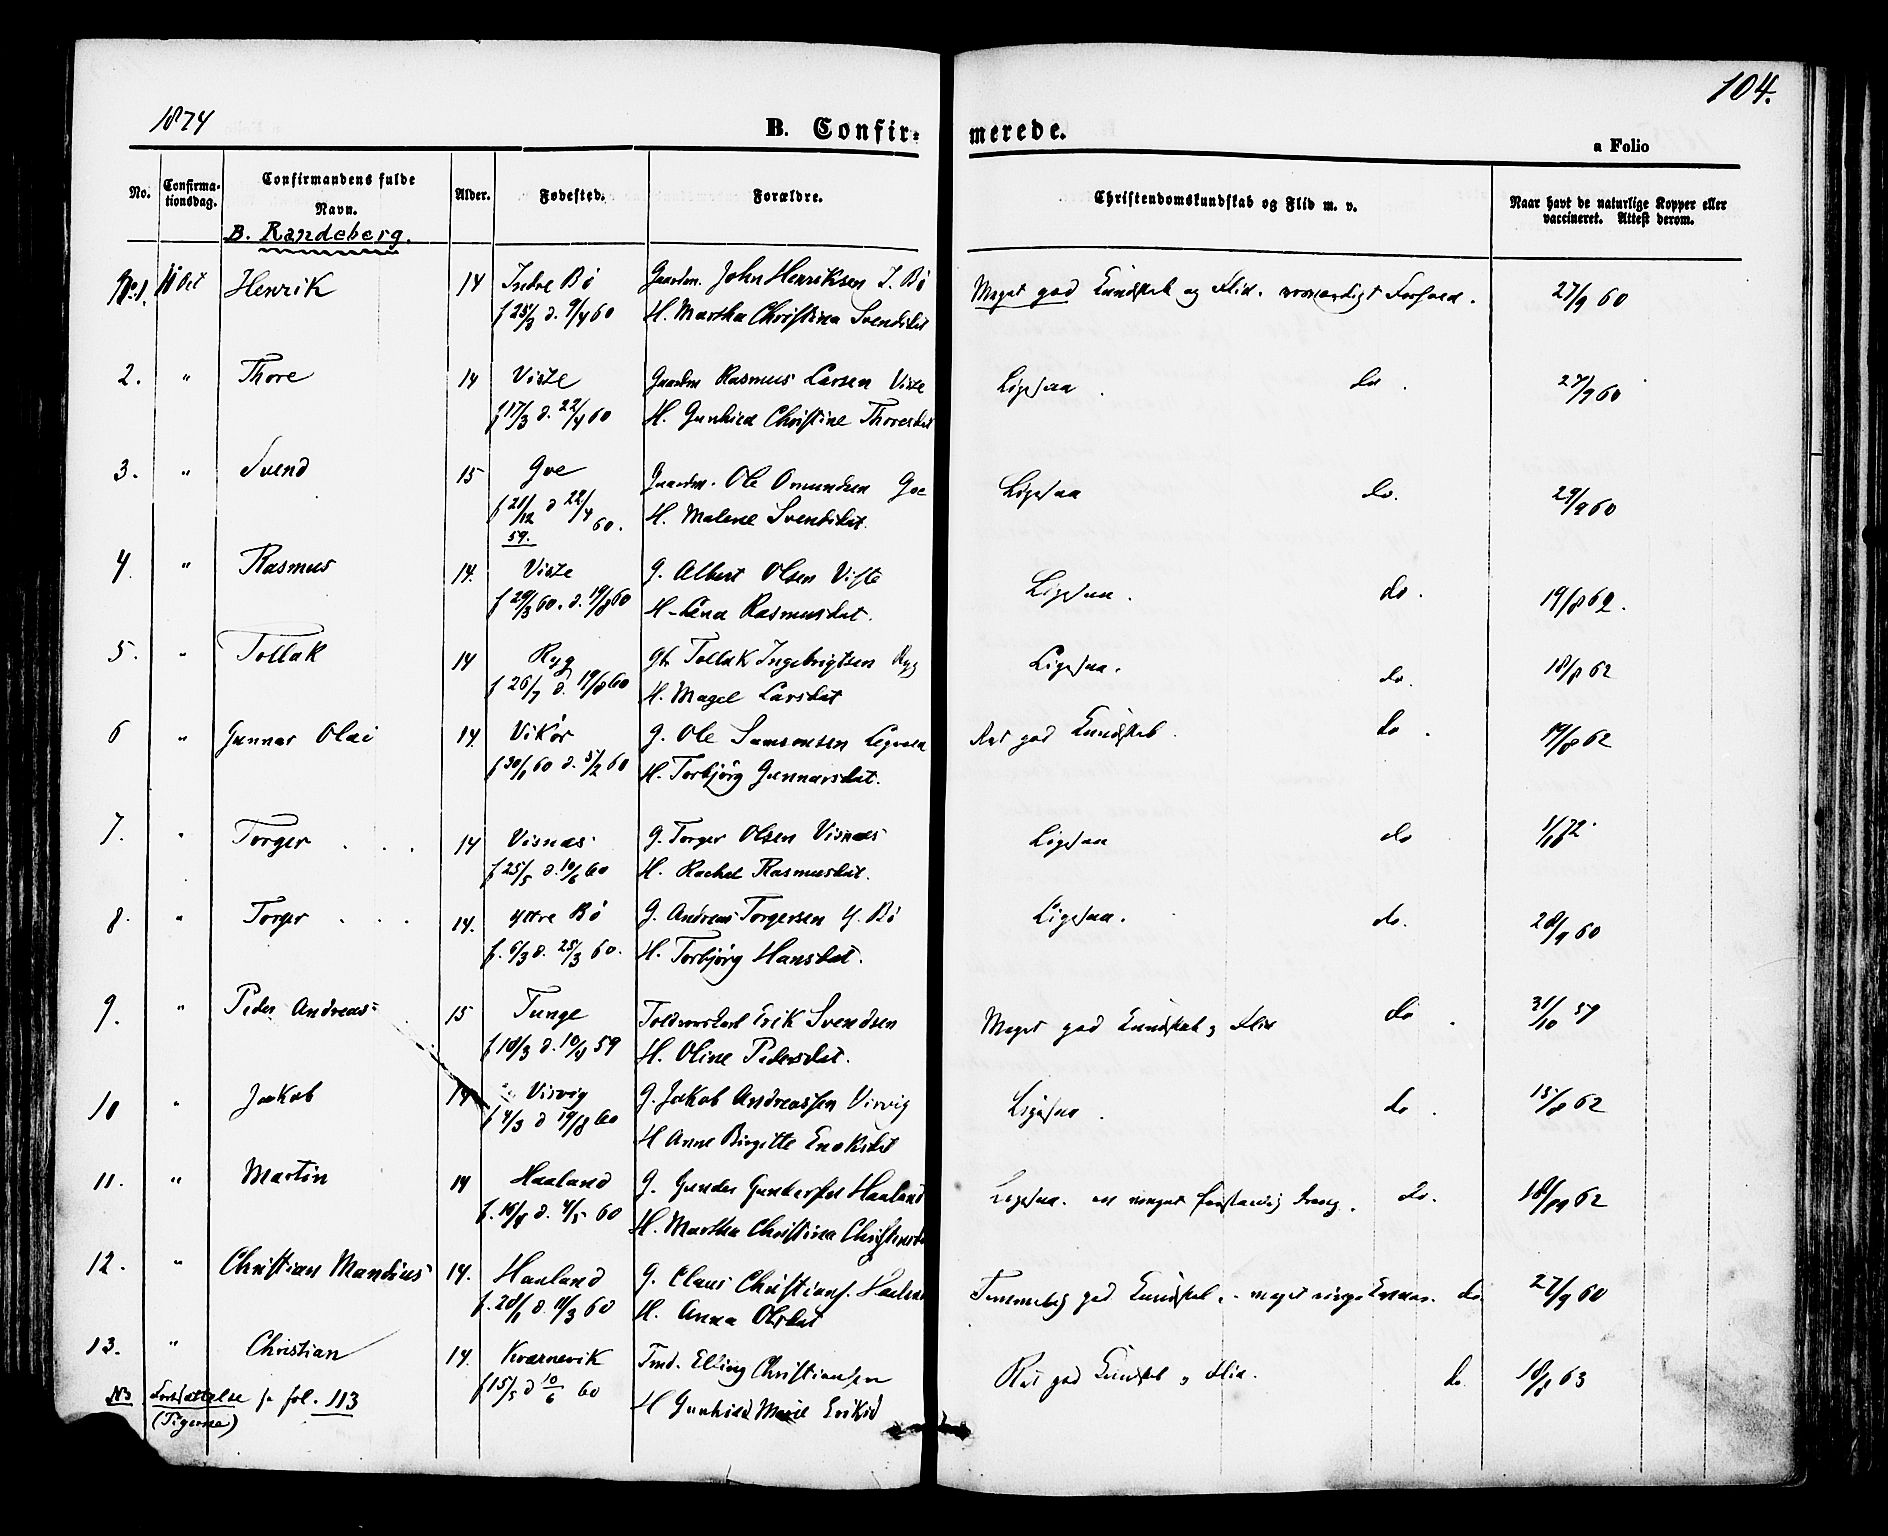 1874
104.
B. Confir-
merede.
a Folio
No.
Confirma-
tionsdag.
Confirmandens fulde
Navn.
Alder.
Fødested.
Forældre.
Christendomskundskab og Flid m. v.
Naar havt de naturlige Kopper eller
vaccineret. Attest derom.
B. Randeberg.
No 1. Oct Henrik 14 Indre Bø Gaardm. John Henriksen I. Bø Meget god Kundskab og Flid. 27/9 60
f 25/3 d. 9/4 60 H. Martha Christina Svendsdat
2. " Thore 14 Viste Gaardm Rasmus Larsen Viste Ligesaa. do. 27/9 60
f 17/3 d. 22/4 60 H. Gunhild Christine Thoresdat
3. " Svend 15 Goe Gaardm. Ole Omundsen Goe Ligesaa do. 29/9 60
f 21/12 d 22/4 60. H. Malene Svendsdat.
59.
4. " Rasmus 14. Viste G. Albert Olsen Viste Ligesaa. do. 19/8 62.
f 29/3 60. d. 19/8 60 H. Lena Rasmusdat.
5. " Tollak 14 Ryg Tollak Ingebrigtsen Ryg Ligesaa. do. 18/8 62
f 26/7 d. 19/8 60 H. Magel Larsdat
6 " Gunnar Olai 14. Vikør G. Ole Samsonsen Ret god Kundskab. do. 19/8 62
f 30/1 60 d. 5/2 60 H. Torbjörg Gunnarsdat.
7. " Torger 14 Visnæs G. Torger Olsen Visnæs Ligesaa do
f 25/5 d. 10/6 60 H. Rachel Rasmusdat.
8. " Torger 14. Ytre Bø G. Andreas Torgersen Y. Bø Ligesaa. do. 28/9 60
f. 6/3 d. 25/3 60. H. Torbjørg Hansdat.
9. " Peder Andreas 15 Tunge Erik Svendsen Meget god Kundskab og Flid do. 31/10 59
f 18/3 d. 10/4 59 H. Oline Pedersdat.
10 " Jakob 14 Visvig G. Jakob Andreassen Visvig Ligesaa. do. 15/8 62
f 4/3 d 19/8 60 H Anne Birgitte Enoksdat
11. " Martin 14 Haaland G. Gunder Gundersen Haaland Ligesaa. en meget forstandig Dreng. do. 62
d. 4/5 60 H. Martha Christina
12. " Christian Mandius 14. Haaland G. Claus Christians. god Kundskab, meget do. 27/9 60
f. 28/1 d. 11/3 60 H. Anna Olsdat
13. " Christian 14. Kværnevik Elling Christiansen Ret god Kundskab og Flid. do. 18/8 63
f 15/5 d 10/6 60 H Gunhild Marie Eriksd
NB Fortsættelse se fol. 113
(Pigerne)